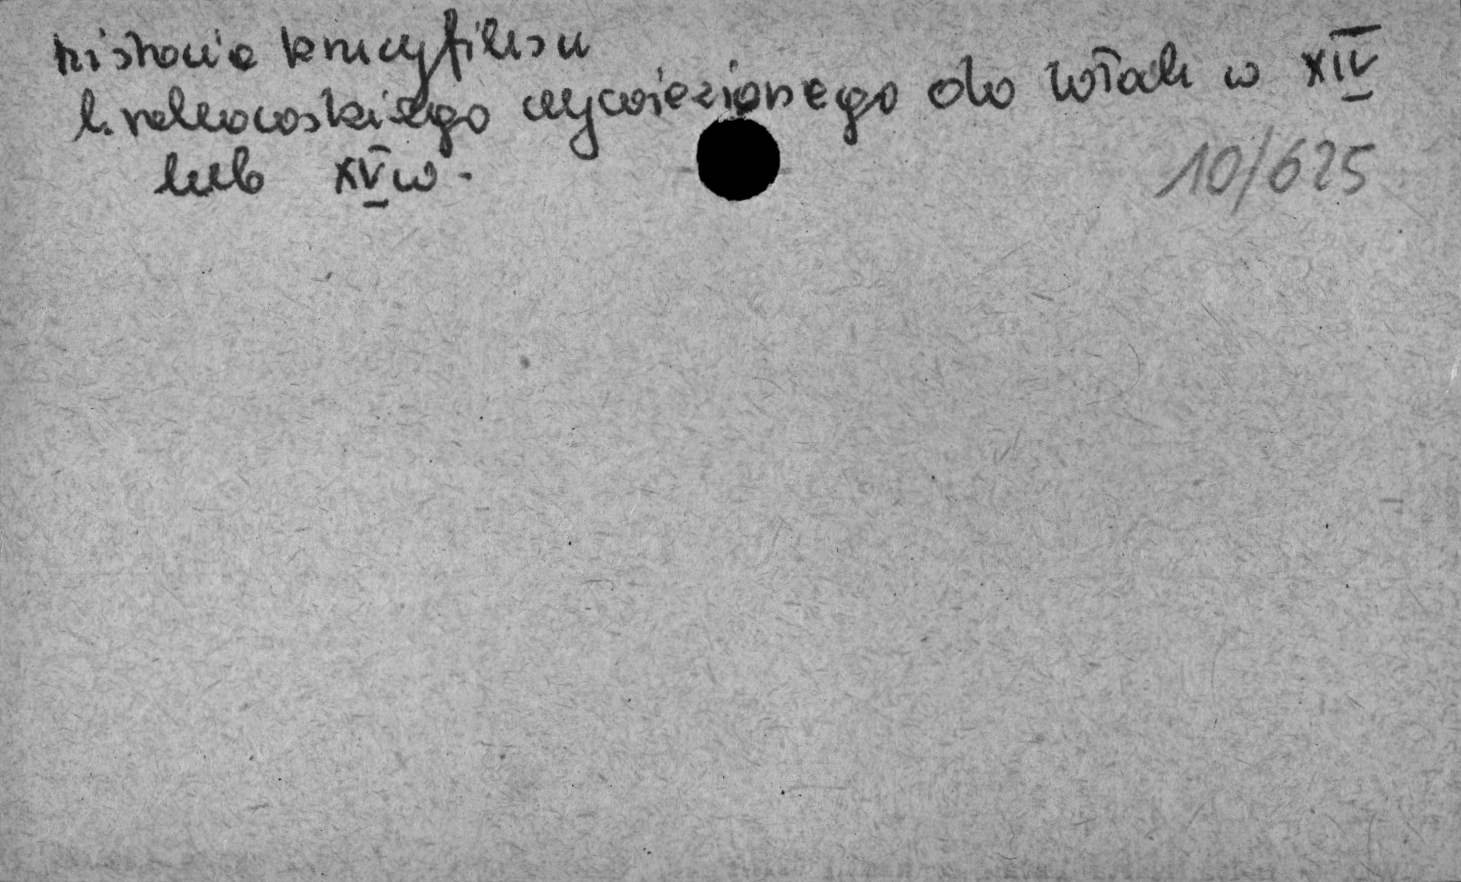 historia krucyfiksu
krakowskiego wywiezionego do Włoch w XIV
lub XV w.
10/625